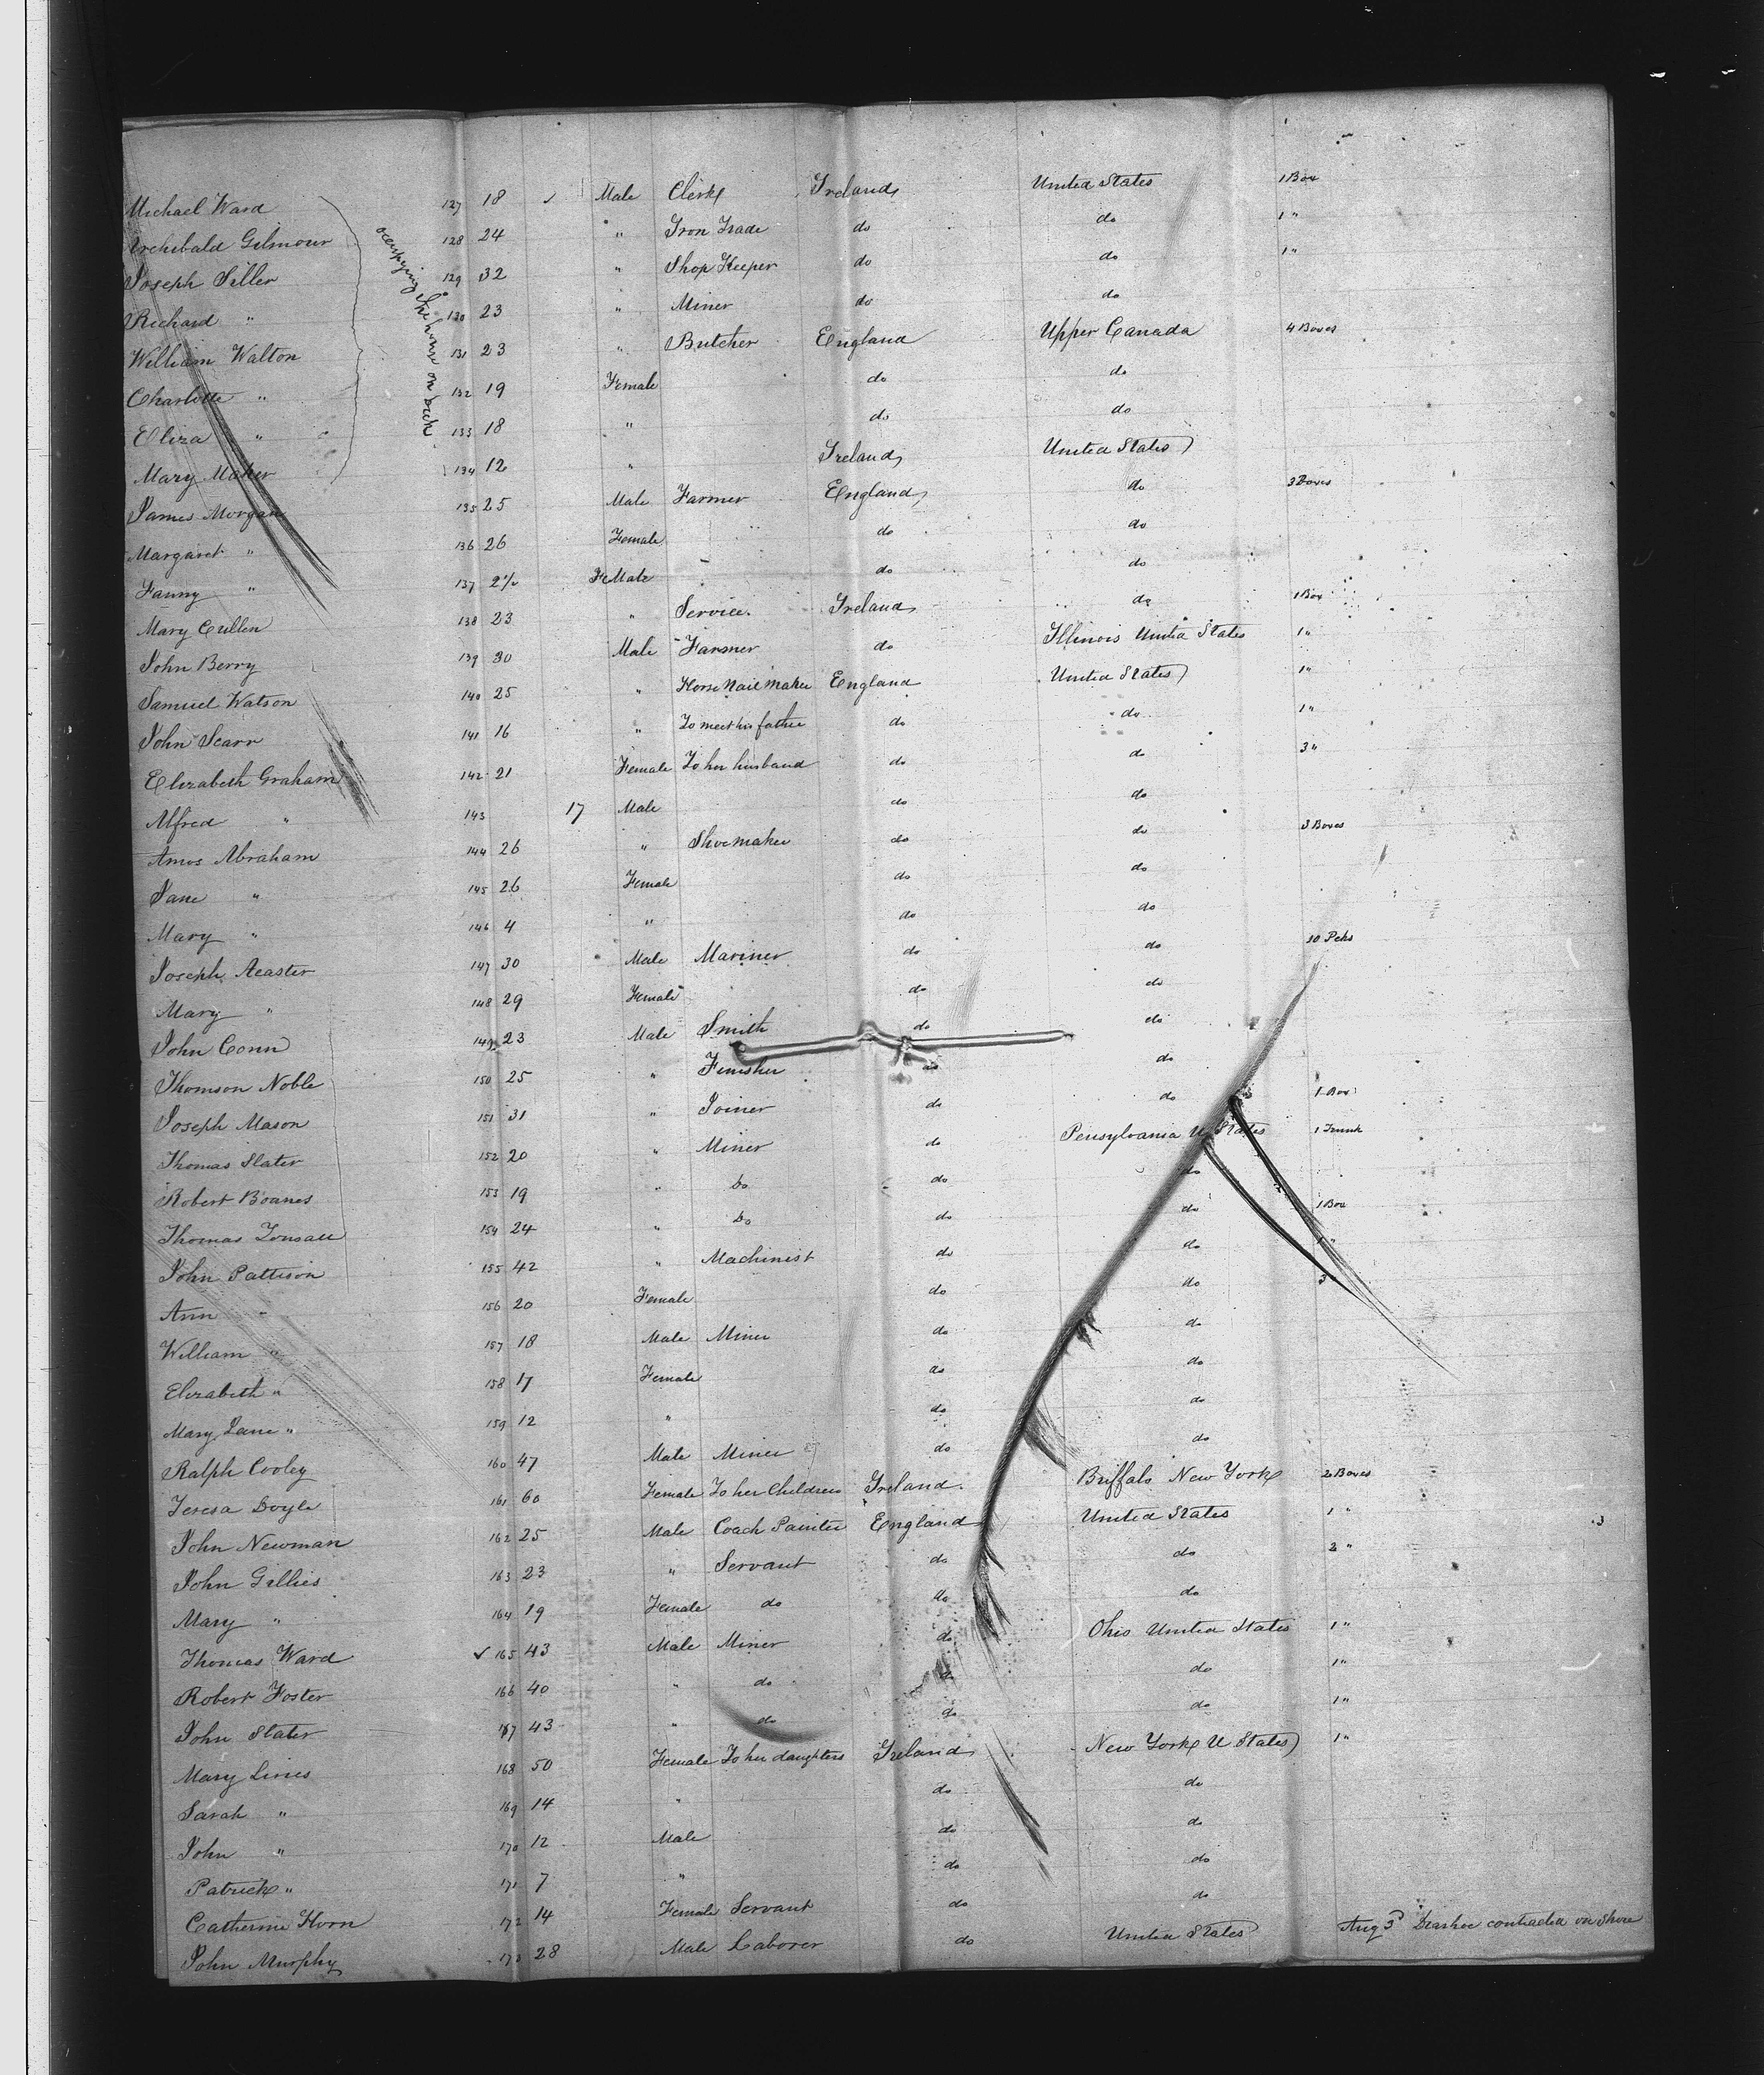 Michael Ward 127 18 ✓ Male Clerk Ireland United States 1 Box
Archibald Gilmour 128 24 " Iron Trade do do 1 "
Joseph Siller 129 32 " Shop Keeper do do 1 "
Richard " 130 23 " Miner do do
William Walton 131 23 " Butcher England Upper Canada 4 Boxes
Charlotte " 132 19 Female do do
Eliza " 133 18 " do do
Mary Maher 134 12 " Ireland United States
occupying the house on deck
James Morgan 135 25 Male Farmer England do 3 Boxes
Margaret " 136 26 Female do do
Fanny " 137 FeMale do do
Mary Cullen 138 23 " Service Ireland do 1 Box
John Berry 139 30 Male Farmer do Illinois United States 1 "
Samuel Watson 140 25 " Horse Nail Maker England United States 1 "
John Scarr 141 16 " To meet his father do do 1 "
Elizabeth Graham 142 21 Female To her husband do do 3 "
Alfred " 143 17 Male do do
Amos Abraham 144 26 " Shoemaker do do 3 Boxes
Jane " 145 26 Female do do
Mary " 146 4 " do do
Joseph Acaster 147 30 Male Mariner do do 10 Pcks
Mary " 148 29 Female do do
John Conn 149 23 Male Smith do do
Thomson Noble 150 25 " Finisher do do
Joseph Mason 151 31 " Joiner do do 1 Box
Thomas Slater 152 20 " Miner do Pensylvania U States 1 Trunk
Robert Boanes 153 19 " Do do do
Thomas 154 24 " Do do do 1 Box
John Pattison 155 42 " Machinist do do 1 "
Ann " 156 20 Female do do 3
William " 157 18 Male Miner do do
Elizabeth " 158 17 Female do do
Mary Jane " 159 12 " do do
Ralph Cooley 160 47 Male Miner do do
Teresa Doyle 161 60 Female To her Children Ireland Buffalo New York 2 Boxes
John Newman 162 25 Male Coach Painter England United States 1 "
John Gillies 163 23 " Servant do do 2 "
Mary " 164 19 Female do do do
Thomas Ward ✓ 165 43 Male Miner do Ohio United States 1 "
Robert Foster 166 40 " do do do 1 "
John Slater 167 43 " do do do 1 "
Mary Lines 168 50 Female To her daughters Ireland New York U States 1 "
Sarah " 169 14 " do do
John " 170 12 Male do do
Patrick " 171 7 " do do
Catherine Horn 172 14 Female Servant do do
John Murphy 173 28 Male Laborer do United States Aug 3 contracted on shore